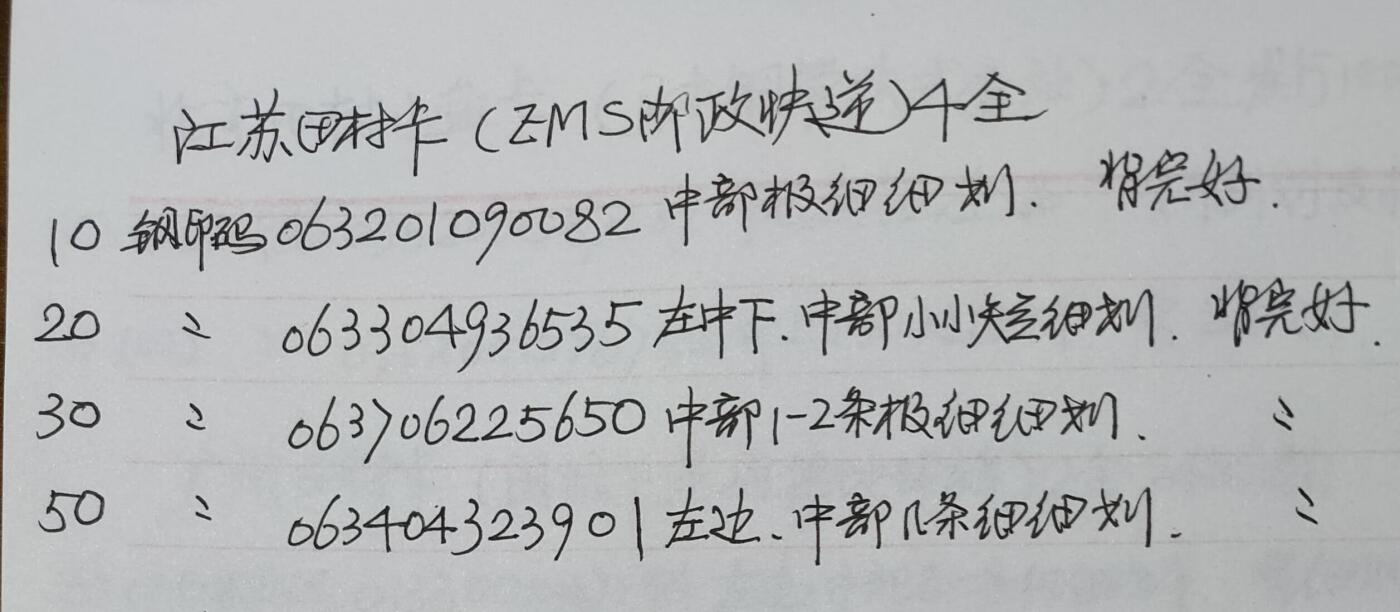 江苏田村卡(EMS邮政快递)4全
10 钢印码063201090082 中部极细细划. 背完好.
20 〃 063304936535 左中下.中部小小短细划. 背完好.
30 〃 063706225650 中部1-2条极细细划. 〃
50 〃 063404323901 左边、中部几条细细划. 〃